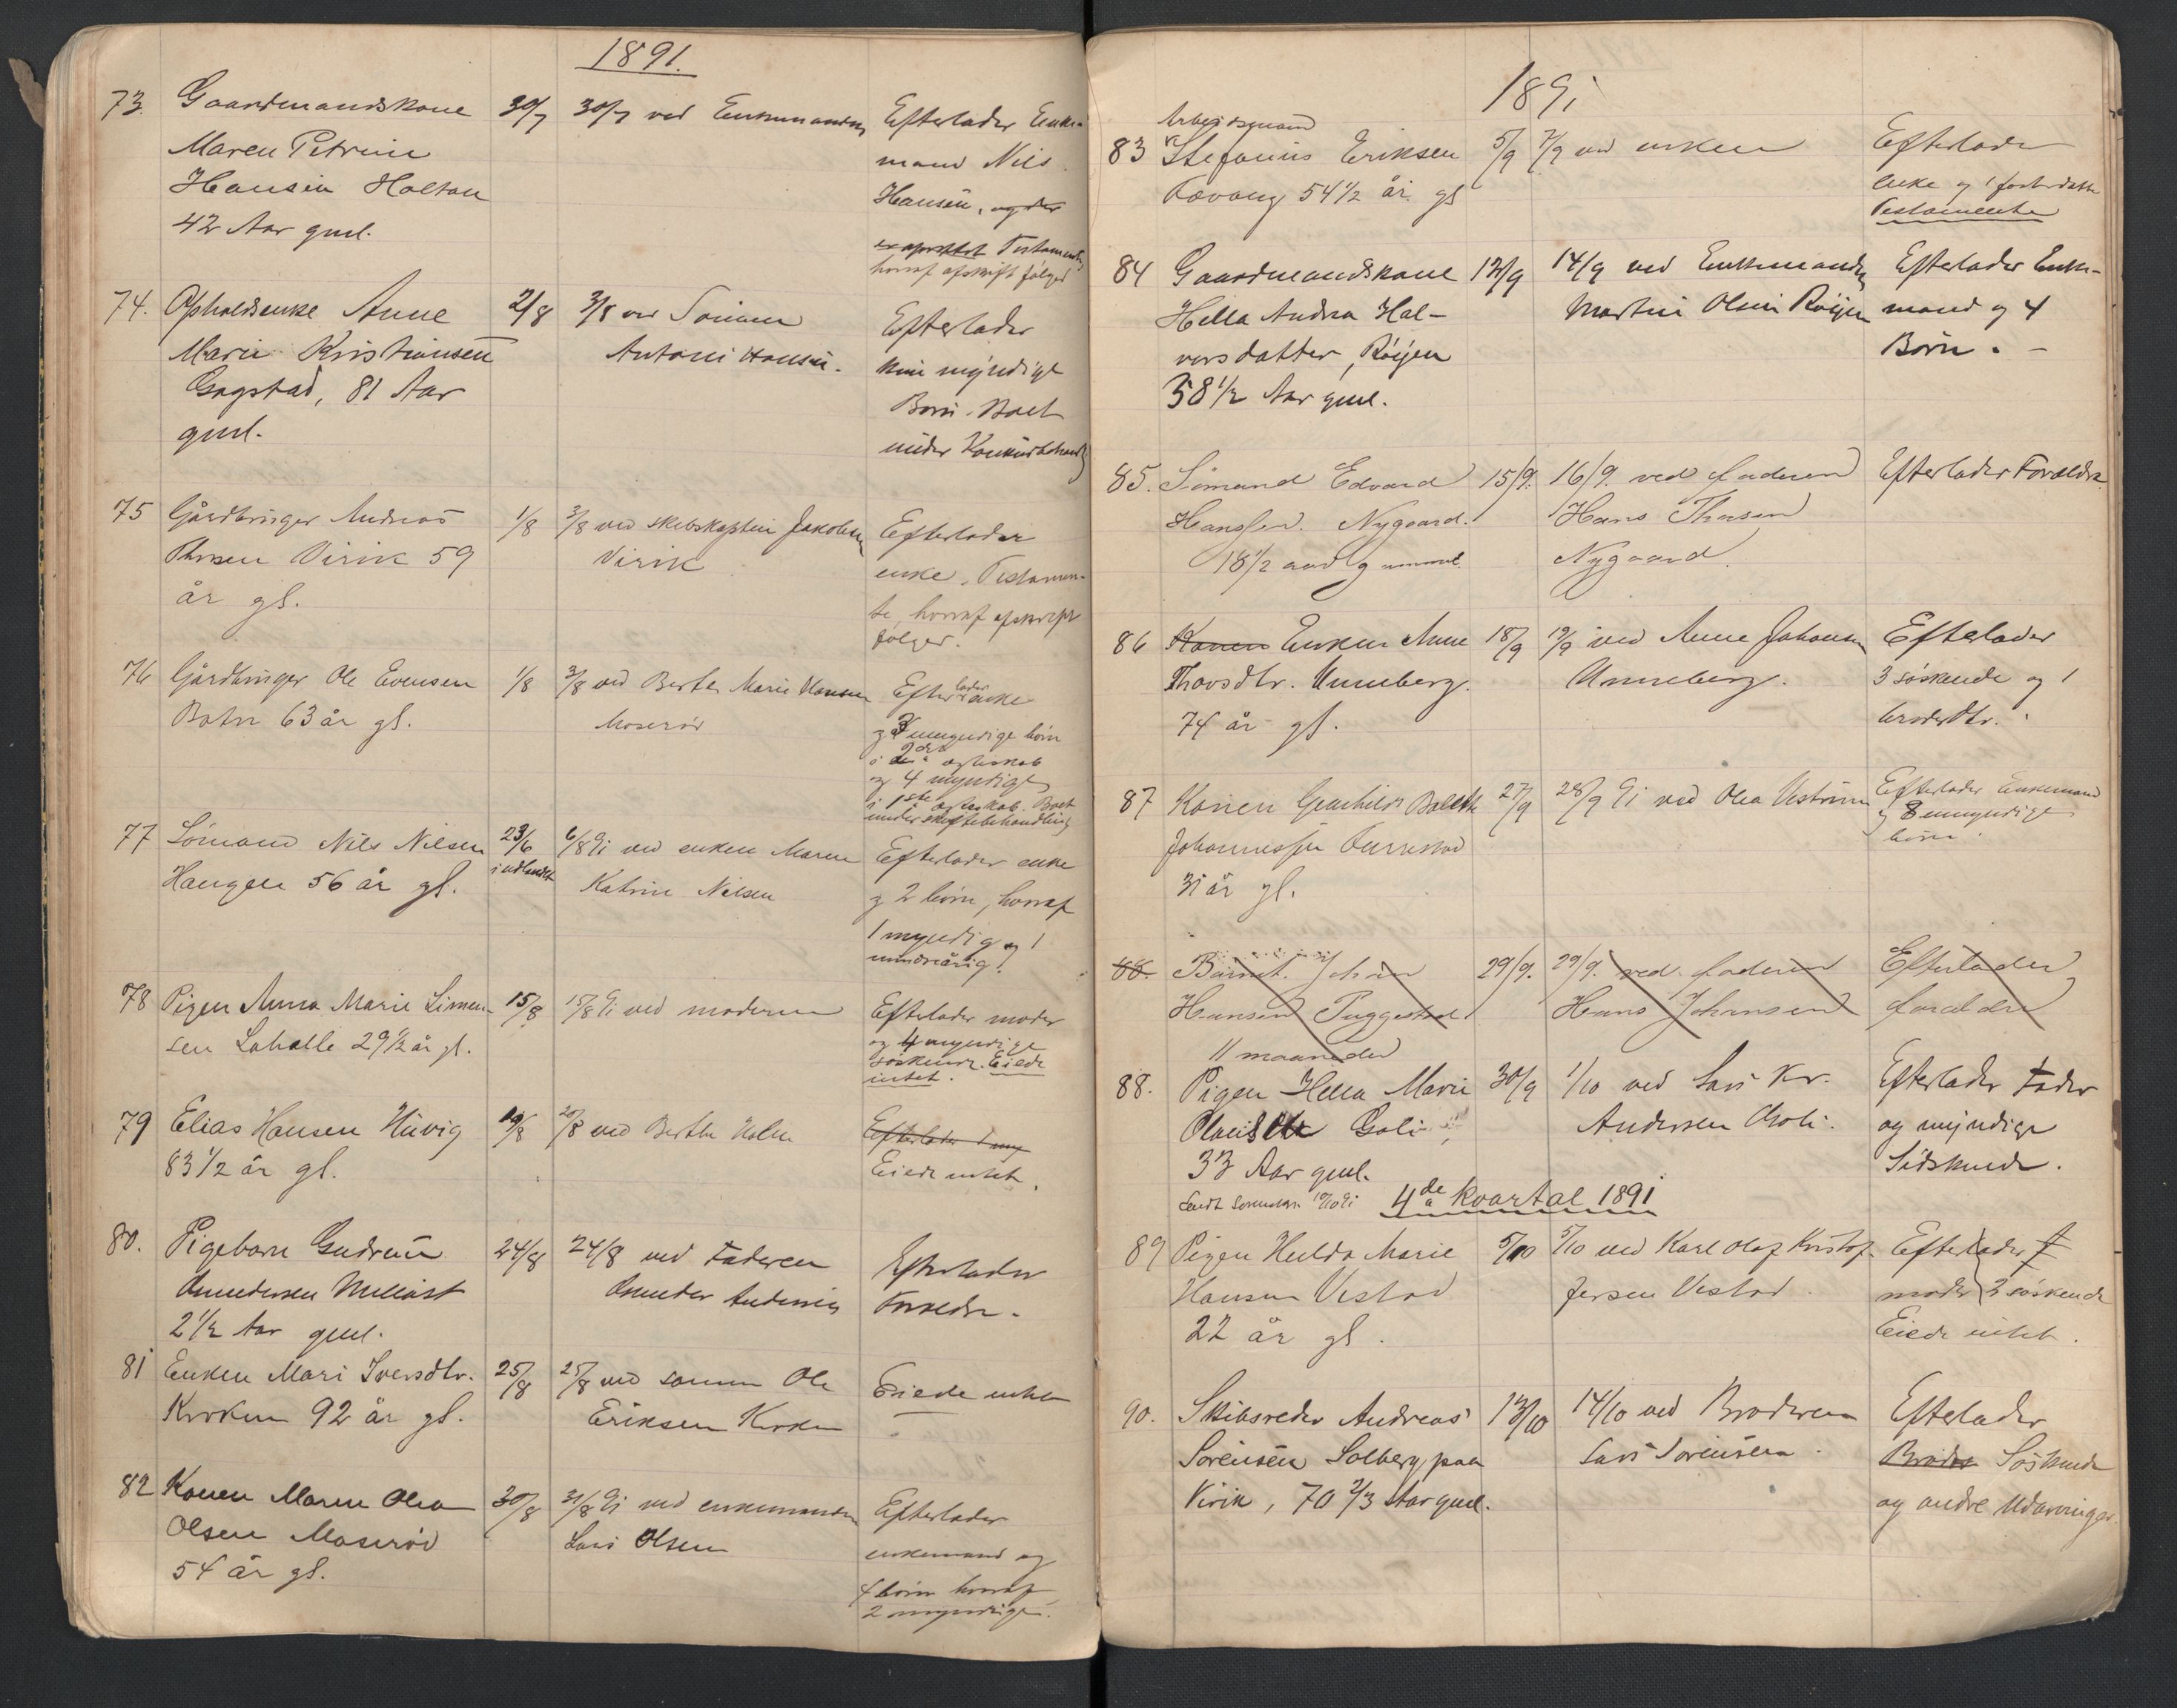 1891.
73. Gaardmandskone 30/7 30/7 ved Enkemanden Efterlader Enke-
Maren Petrine mand Nils
Hansen Holtan Hansen, og der
42 Aar gml. er oprettet Testamente,
hvoraf afskrift følger
74. Opholdsenke Anne 2/8 3/8 ved Sønnen Efterlader
Marie Kristiansen Antoni Hansen. kun myndige
Gogstad, 81 Aar Børn. Boet
gml. under Konkursbehandlg
75 Gårdbruger Andreas 1/8 3/8 ved skibskaptein Jakobsen Efterlader
Thorsen Virik 59 Virik enke. Testamen-
år gl. te, hvoraf afskrift
følger.
76 Gårdbruger Ole Evensen 1/8 3/8 ved Berthe Marie Hansen Efterlader enke
Botn 63 år gl. Moserød og 3 umyndige børn
i 2det ægteskab
og 4 myndige
i 1ste ægteskab. Boet
under skiftebehandling
77 Sømand Nils Nilsen 23/6 6/8 91 ved enken Maren Efterlader enke
Haugen 56 år gl. i udlandet Katrine Nilsen og 2 børn, hvoraf
1 myndig og 1
mindreårig.
78 Pigen Anna Marie Simon- 15/8 15/8 91 ved moderen Efterlader moder
sen Lahelle 29 1/2 år gl. og 4 myndige
søskende. Eiede
intet.
79 Elias Hansen Huvig 19/8 20/8 ved Berthe Holm Efterlader 1 myn
83 1/2 år gl. Eiede intet.
80. Pigebarn Gudrun 24/8 24/8 ved Faderen Efterlader
Amundsen Forældre.
2 1/2 Aar gml.
81 Enken Mari Iversdtr. 25/8 25/8 ved sønnen Ole Eiede intet
Kroken 92 år gl. Eriksen Kroken
82 Konen Maren Olea 30/8 31/8 91 ved enkemanden Efterlader
Olsen Moserød Lars Olsen enkemand og
54 år gl. 4 børn hvoraf
2 myndige.
1891
Arbeidsmand
83 Stefanus Eriksen 5/9 7/9 ved enken Efterlader
54 1/2 år gl enke og 1 fosterdatter
Testamente
84 Gaardmandskone 12/9 14/9 ved Enkemanden Efterlader Enke-
Hella Andrea Hal- Martin Olsen Røijen mand og 4
vorsdatter, Røijen Børn. -
58 1/2 Aar gml.
85. Sømand Edvard 15/9. 16/9. ved faderen Efterlader Forældre
Hanssen. Nygaard. Hans Thorsen
18 1/2 aar gammel. Nygaard.
86 Konen Enken Anne 18/9 19/9 ved Anne Johansen Efterlader
Thorsdtr. Unneberg. Unneberg. 3 søskende og 1
74 år gl. broderdtr.
87 Konen Gunhilde 27/9 28/9 91 ved Olea Vestrum Efterlader Enkemand
Johannessen Furustad og 8 umyndige
31 år gl. børn.
88. Barnet. Johan 29/9. 29/9. ved faderen Efterlader
Hansen Puggestad Hans Johansen forældre
11 maaneder
88. Pigen Hella Marie 30/9 1/10 ved Lars Kr. Efterlader Fader
Goli, Andersen og myndige
33 Aar gml. Sødskende.
4de kvartal 1891
89 Pigen Hulda Marie 5/10 5/10 ved Karl Olaf Kristof- Efterlader
Hansen Vestad fersen Vestad. moder 2 søskende
22 år gl. Eiede intet.
90. Skibsreder Andreas 13/10 14/10 ved Broderen Efterlader
Sørensen Solberg paa Lars Sørensen. Broder Søskende
Virik, 70 2/3 Aar gml. og andre Udarvinger.